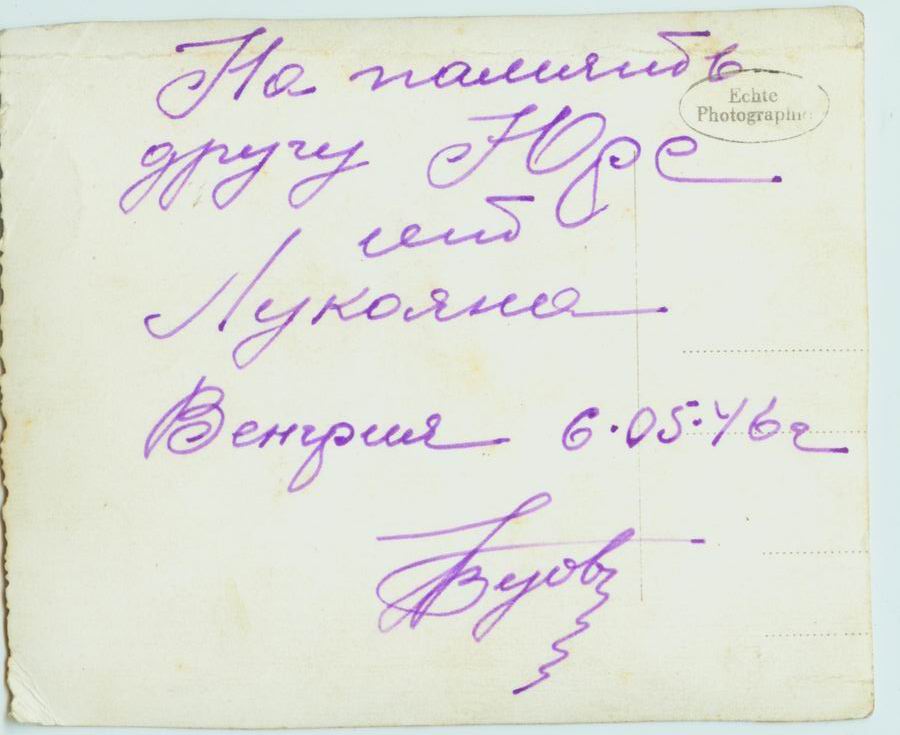 На память
Echte
Photographie
другу Юре
от
Лукояна
Венгрия 6.05.46г